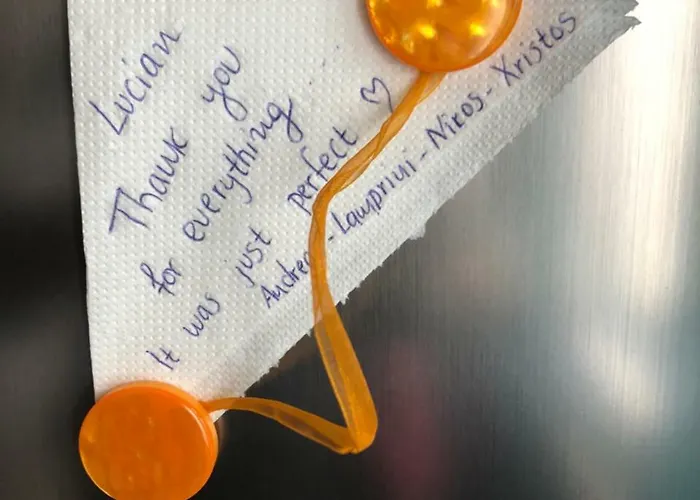 Lucian
Thank you
for everything...
It was just perfect ♡
Andrea-Lamprini-Nikos-Xristos